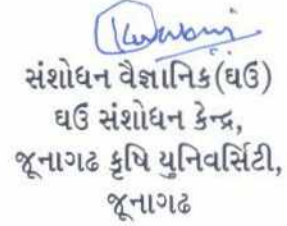 સંશોધન વૈજ્ઞાનિક(ઘઉં)
ઘઉં સંશોધન કેન્દ્ર,
જૂનાગઢ કૃષિ યુનિવર્સિટી,
જૂનાગઢ